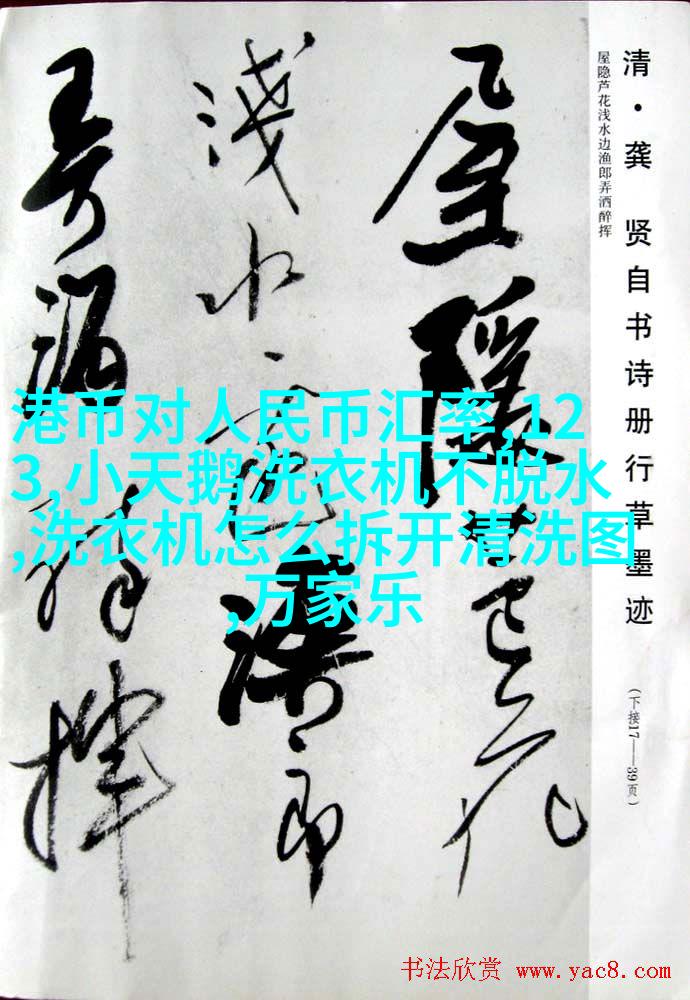 清·龚 贤自书诗册行草墨迹
屋隐芦花浅水边渔郎弄酒醉挥
(下接17——39页)
屋隐芦花
浅水边渔郎
弄酒醉挥
港币对人民币汇率,12
3,小天鹅洗衣机不脱水
,洗衣机怎么拆开清洗图
,万家乐
书法欣赏 www.yac8.com